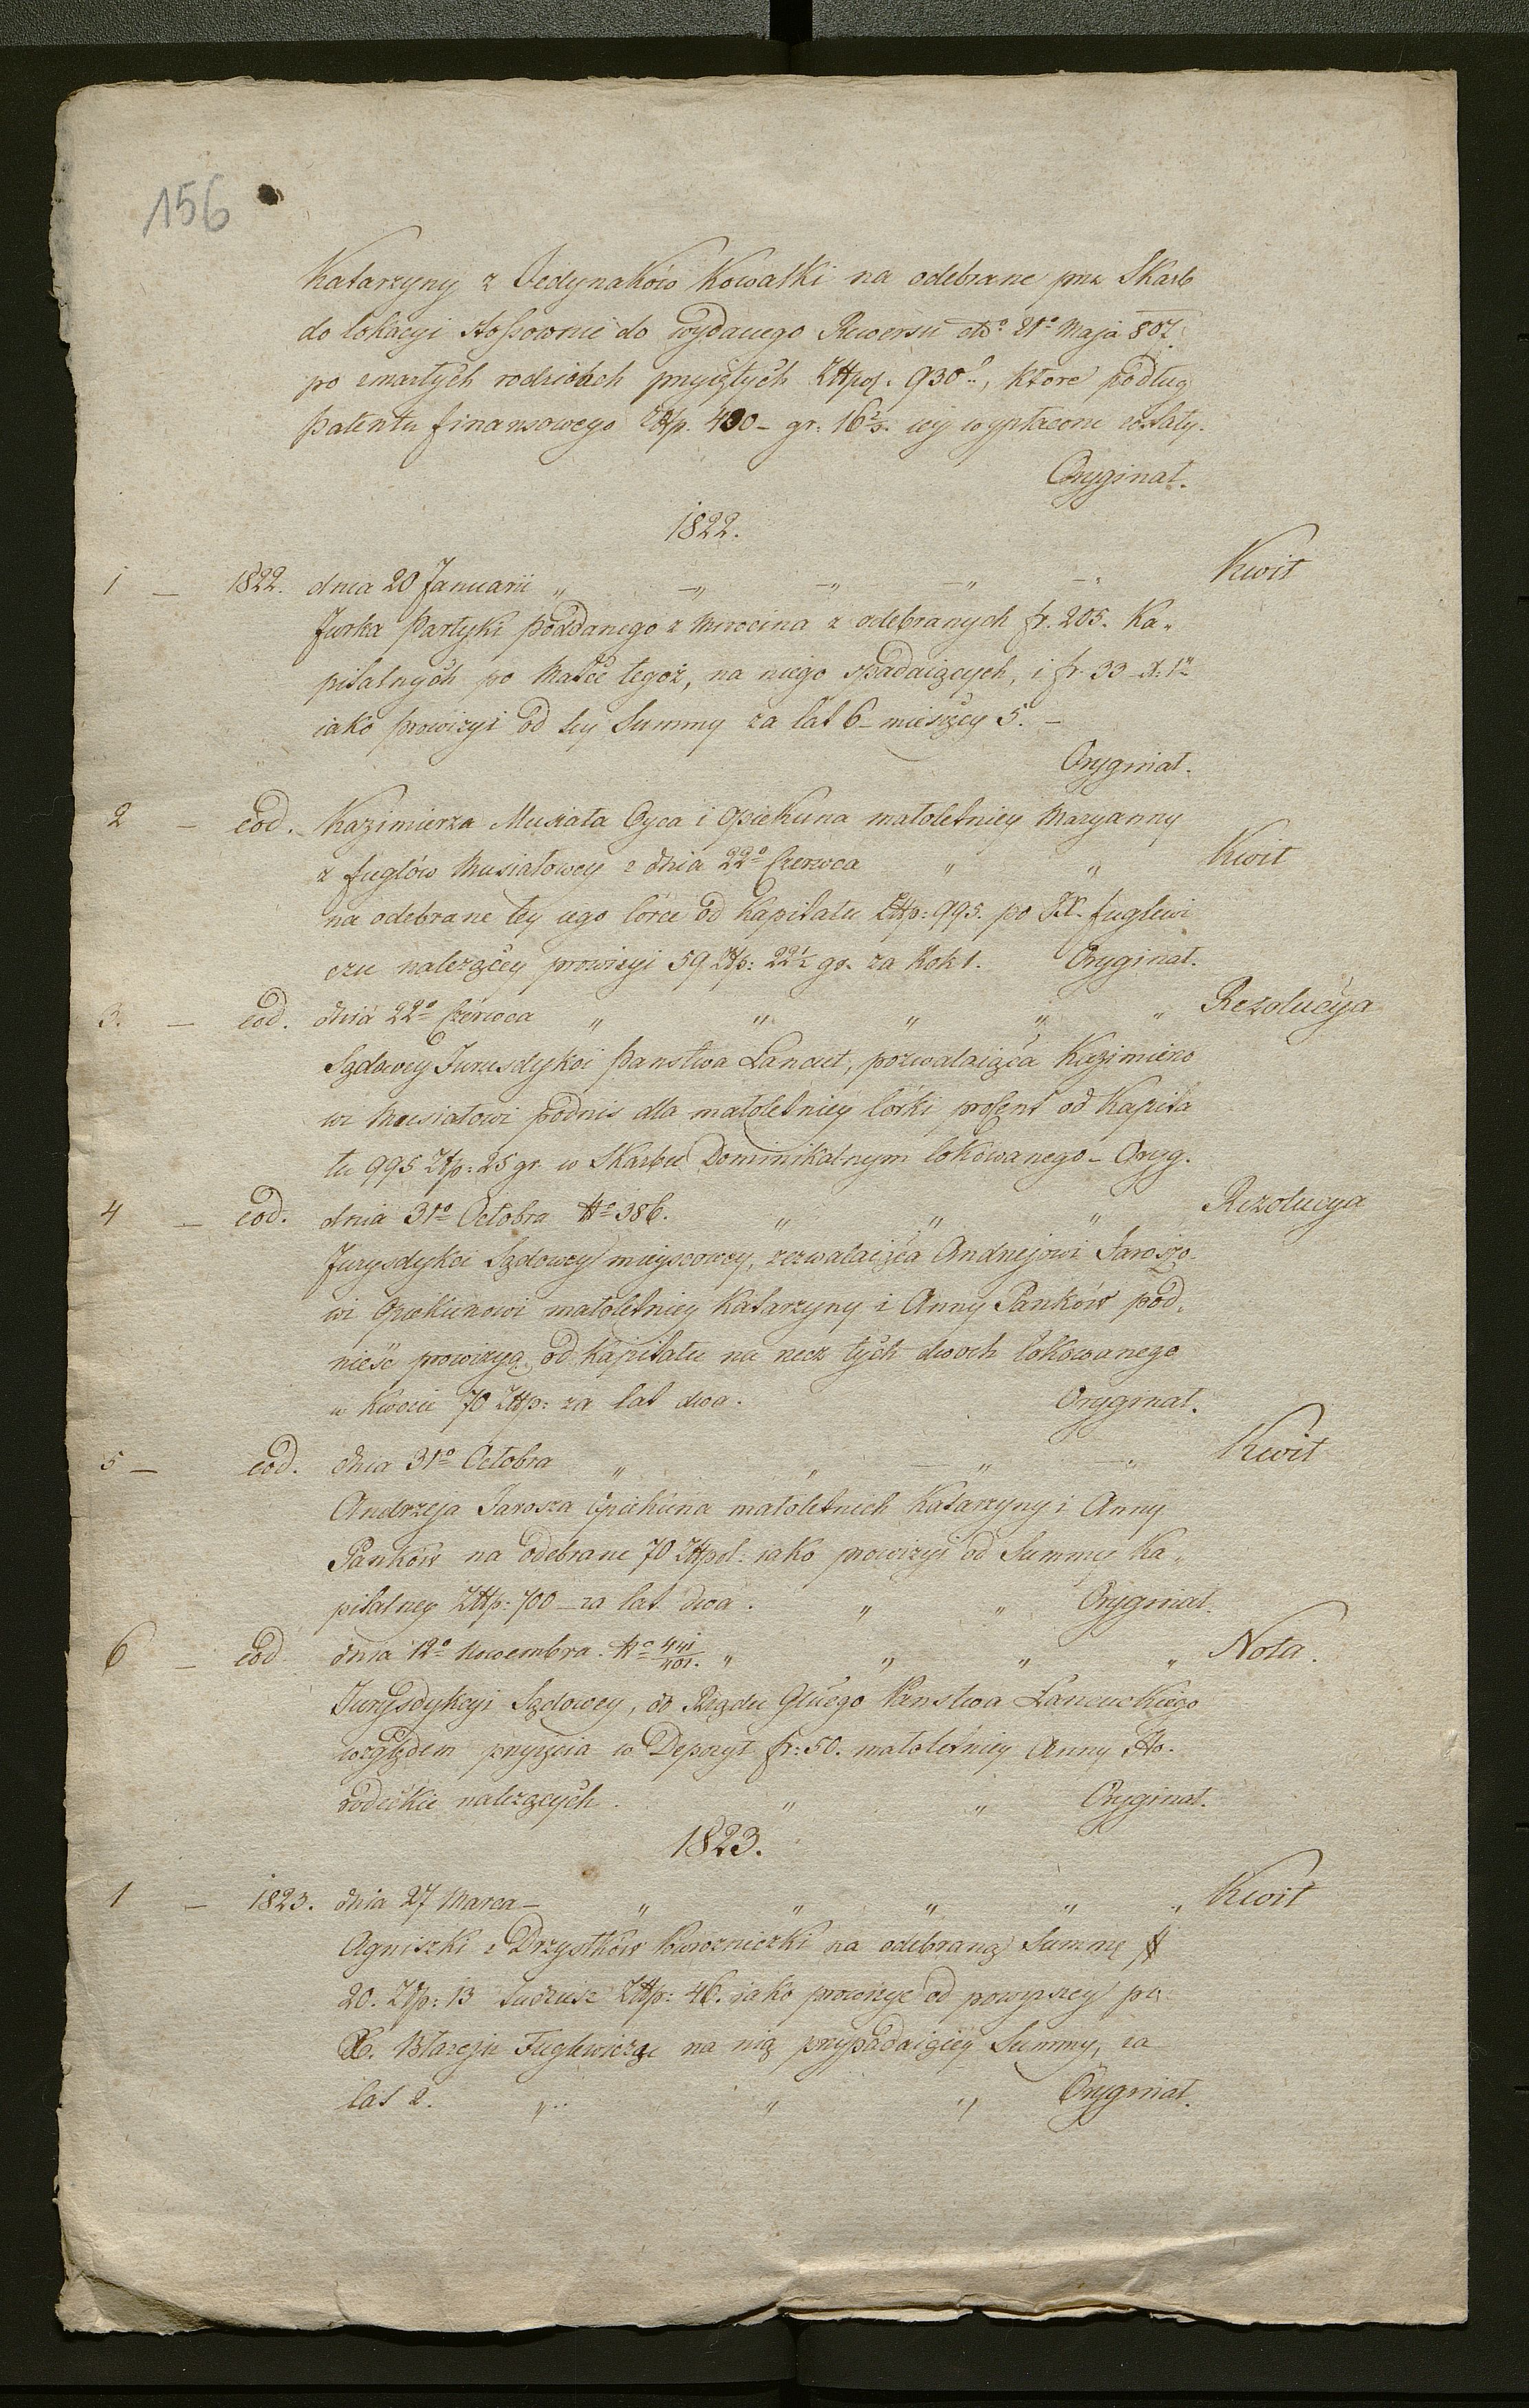 156
Katarzyny z Jedynaków Kowalki na odebrane prze Skarb
do lokacyi stossownie do wydanego Rewersu dtto 21o Maja 807.
po zmarłych rodzicach przyiętych ZHpol. 930, ktore podług
Patentu finansowego ZHp. 400 – gr: 16 2/5. iey wypłacone zostały.
Oryginał.
1822.
1 – 1822. dnia 20 Januarii „ –„ –„ –„ –„ Kwit
Jurka Partyki poddanego z Mirocina z odebranych fr. 205. Ka„
pitalnych po Matce tegoż, na niego spadaiących, i fr. 33 x. 1
iako prowizyi od tey Summy za lat 6 – miesięcy 5. –
Oryginał.
2 – eod. Kazimierza Musiała Oyca i Opiekuna małoletniey Maryanny
z fuglów Musiałowey z dnia 22o Czerwca „ „ Kwit
na odebrane tey iego córce od Kapitału ZHp: 995. po X. fuglewi
czu należącey prowizyi 59 ZHp: 22 1/2 gr. za Rok 1. Oryginał.
3. – eod. dnia 22o Czerwca „ „ „ „ „ Rezolucya
Sądowey Jurysdykci Panstwa Lancut, pozwalaiąca Kazimierzo
wi Musiałowi podnis dla małoletniey córki procent od Kapita
łu 995 ZHp: 25 gr. w Skarbu Dominikalnym lokowanego – Oryg.
4 – eod. dnia 31o Octobra No 386. „ „ „ Rezolucya
Jurysdykci Sądowey mieyscowey, zezwalaiąca Andrzejowi Jaroszo
wi Opiekunowi małoletniey Katarzyny i Anny Panków pod„
nieść prowizyą od kapitału na recz tych dwoch lokowanego
w Kwocie 70 ZHp: za lat dwa. Oryginał.
5 – eod. dnia 31o Octobra „ „ –„ –„ Kwit
Andrzeja Jarosza Opiekuna małoletnich Katarzyny i Anny
Panków na odebrane 70 ZHpol: iako prowizyi od Summy Ka„
pitalney ZHp: 700 – za lat dwa. „ „ Oryginał.
6 – eod dnia 12o Nowembra. No 441/401. „ „ „ „ Nota.
Jurysdykcyi Sądowey, do Rządu Głłego Panstwa Lancuckiego
względem przyięcia w Depozyt fr: 50. małoletniey Anny Ho„
rodeckie należących. „ „ Oryginał.
1823.
1 – 1823. dnia 27 Marca – „ „ „ „ „ Kwit
Agniszki z Drzystków Powrozniczki na odebraną Summę #
20. ZHp: 13 tudziesz ZHp: 46. iako prowizyę od powyszey po
X. Błazeju Fuglewiczu na nią przypadaiącey Summy, za
lat 2. „ „ „ Oryginał.